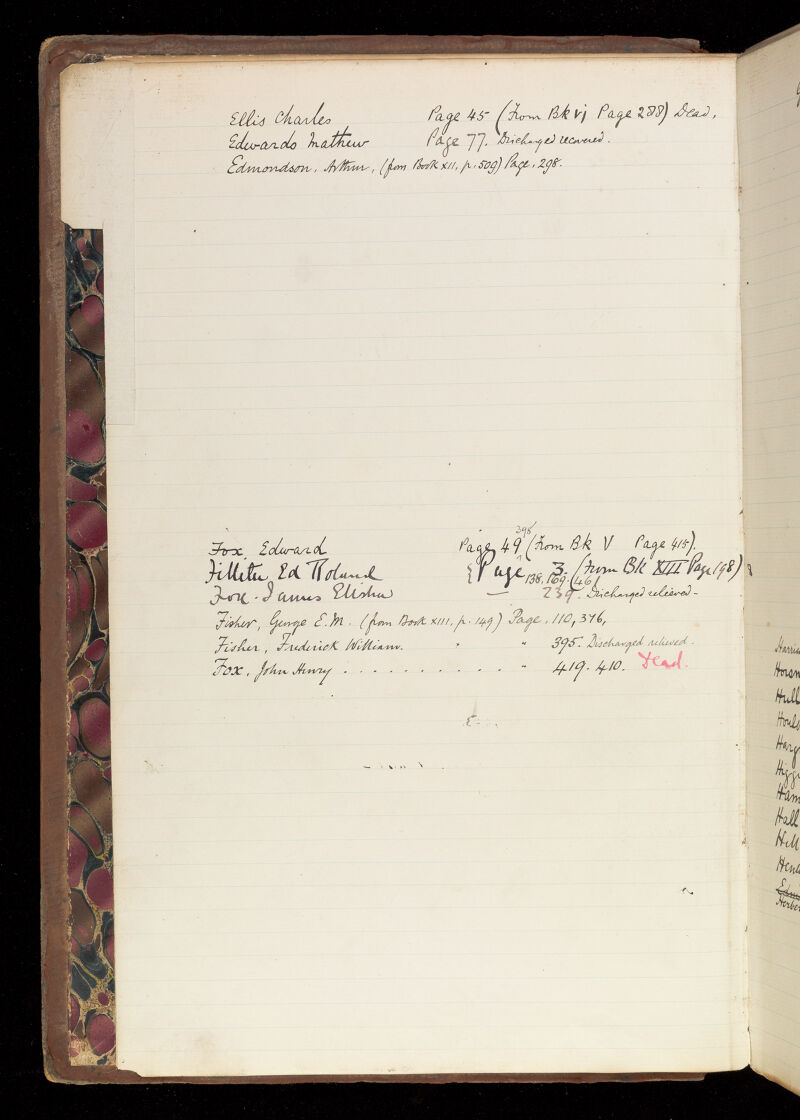 Ellis Charles Page 45 (From Bk vj Page 288) Dead.
Edwards Mathew Page 77. Discharged recovered.
Edmondson, Arthur, (from Book XII, p. 509) Page, 298.
398
Fox, Edward Page 49 (From Bk V Page 415).
Ed Roland { Page 3. (From Bk XIII Page 198)
138. 169. (46)
Fox. James Elisha — 239. Discharged relieved -
Fisher, George E. M. (from Book XIII, p. 149) Page, 110, 376,
Fisher, Frederick William. " " 395. Discharged relieved.
Fox, John Henry . . . . . . . . . . " 419. 410. Dead.
Hull
Hall
Hill